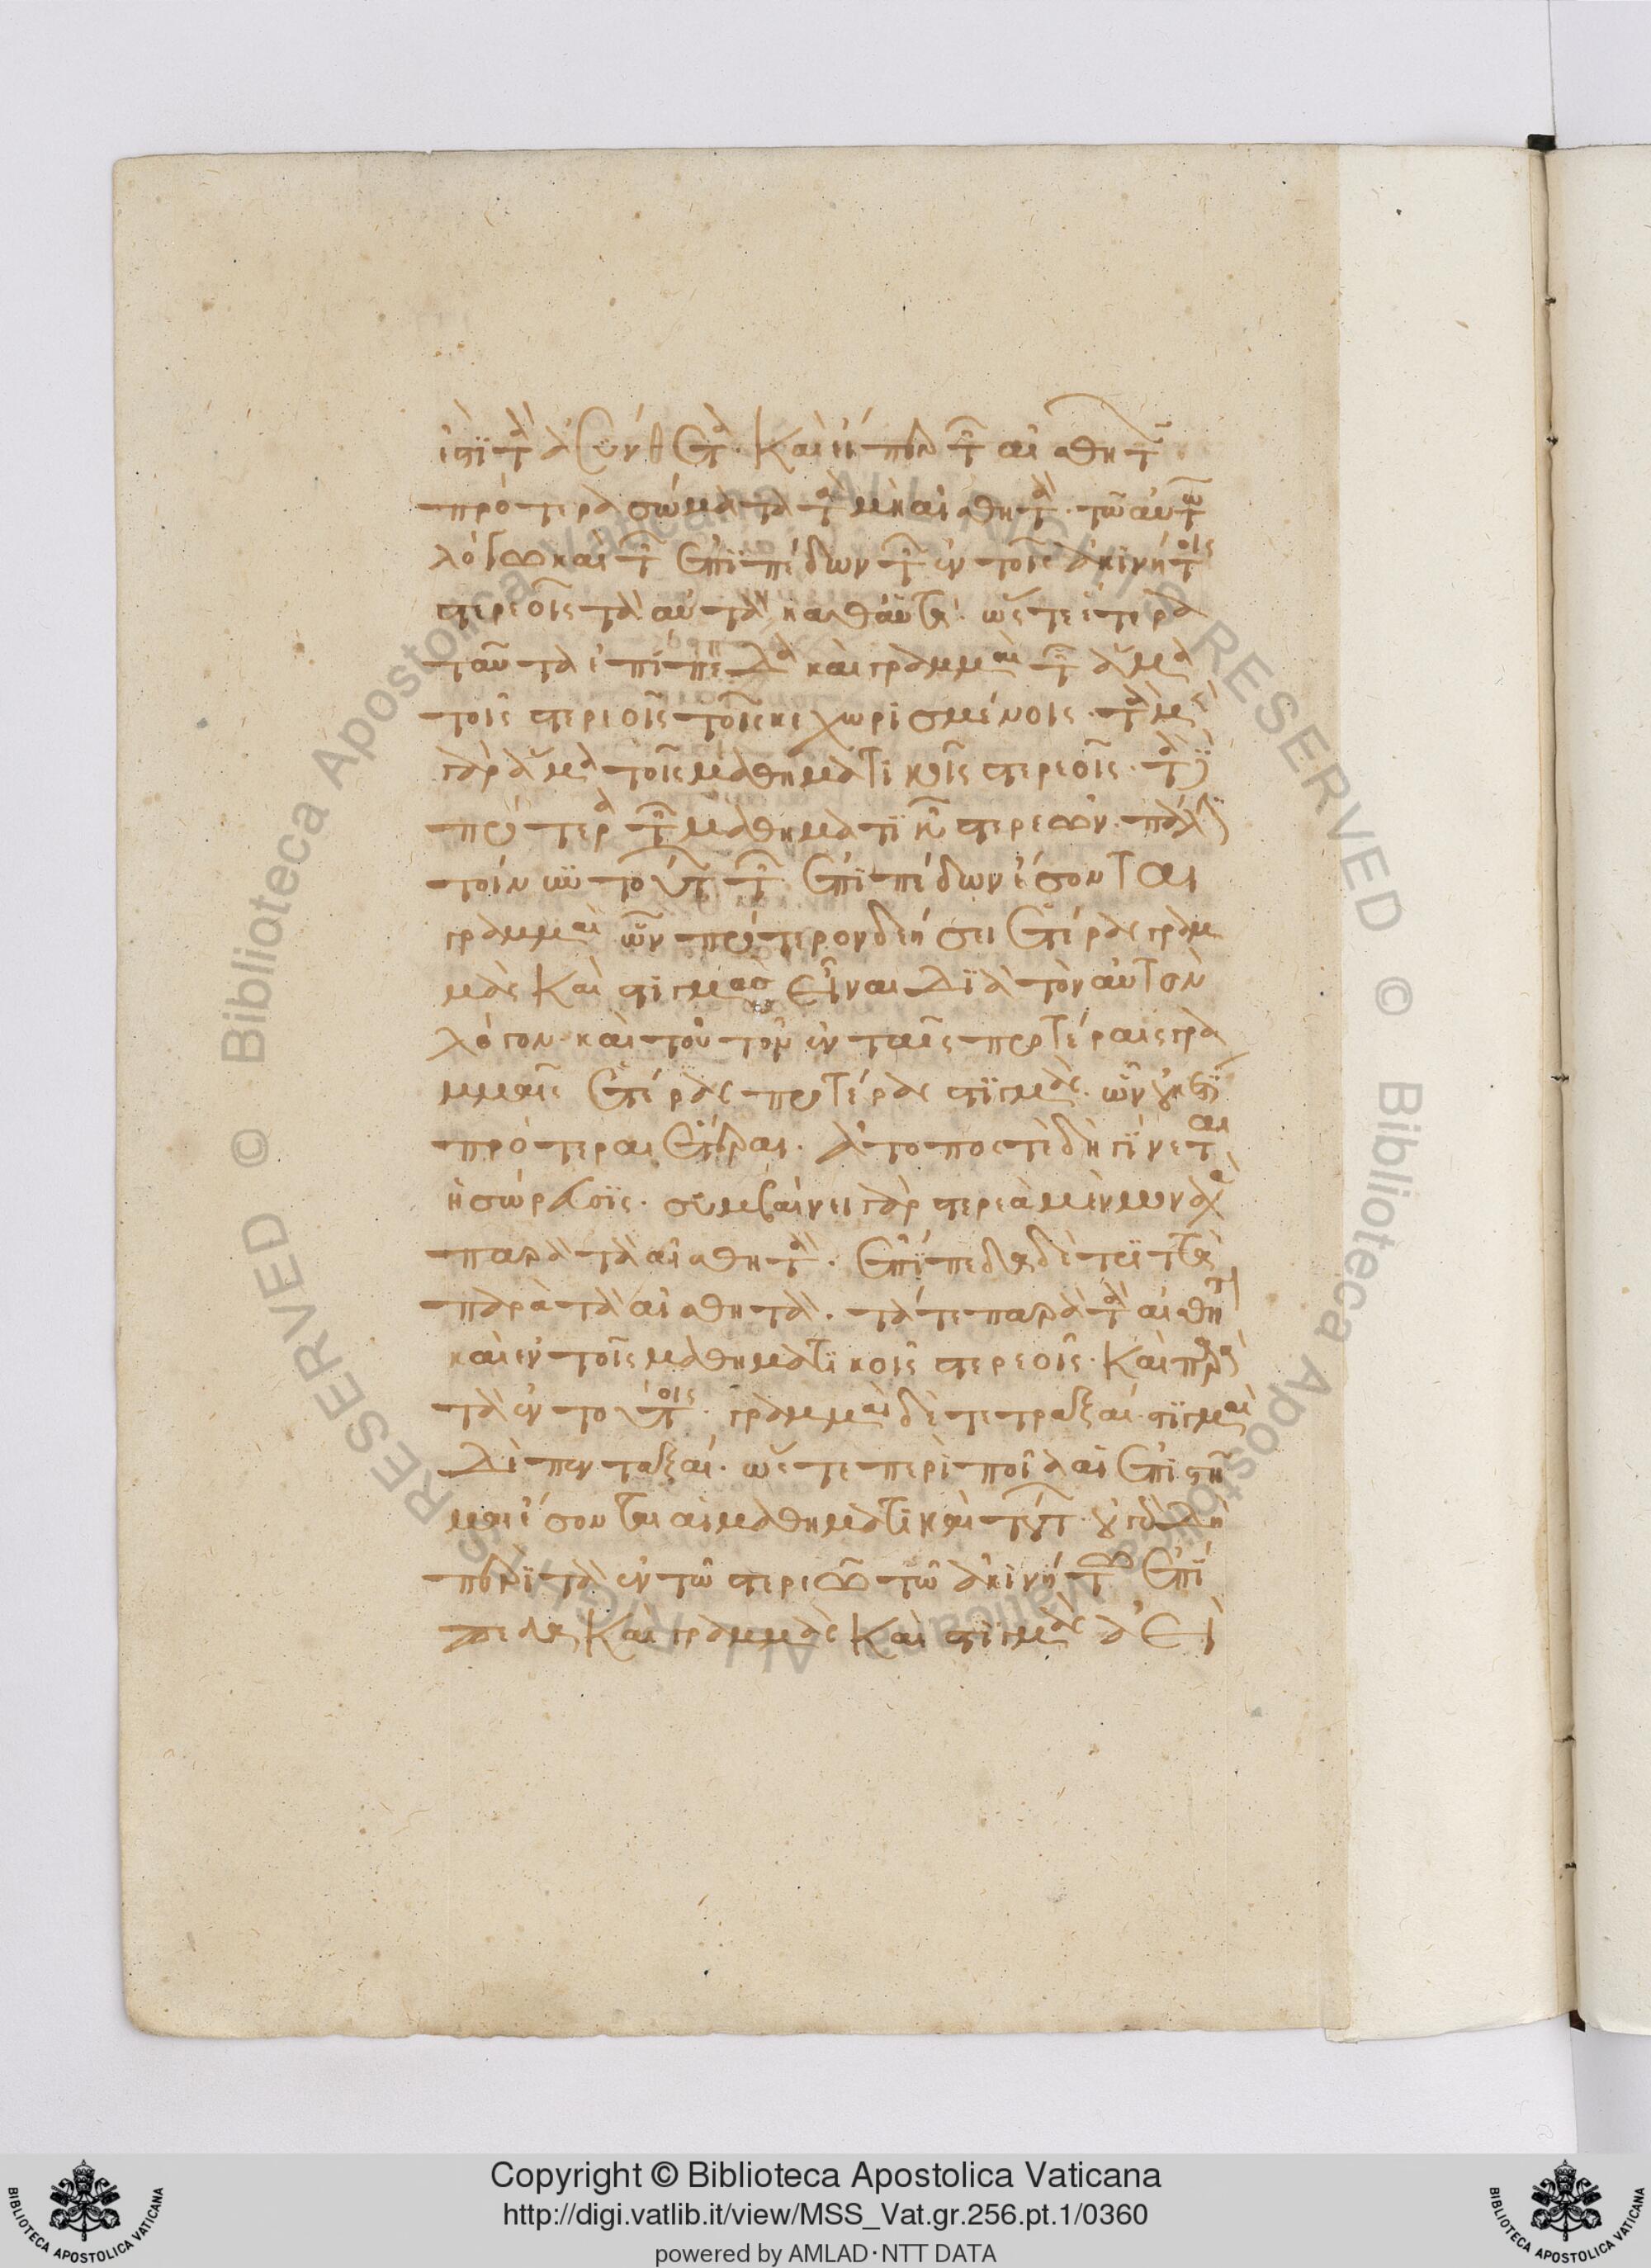 ἐστὶ τὰ ἀσύνθετα. καὶ εἴπερ τῶν αἰσθητῶν
πρότερα σώματα τὰ μὴ αἰσθητά. τῶ αὐτῶ
λόγω καὶ τῶν ἐπιπέδων τῶν ἐν τοῖς ἀκινήτοις
στερεοῖς τὰ αὐτὰ καθ αὑτά. ὥστε ἕτερα
ταῦτα ἐπίπεδα καὶ γραμμαὶ τῶν ἅμα
τοῖς στερεοῖς τοῖς κεχωρισμένοις. τὰ μὲν
γὰρ ἅμα τοῖς μαθηματικοῖς στερεοῖς. τὰ δὲ
πρότερα τῶν μαθηματικῶν στερεῶν. πάλιν
τοίνυν τούτων τῶν ἐπιπέδων ἔσονται
γραμμαὶ ὧν πρότερον δεήσει ἑτέρας γραμ
μὰς καὶ στιγμὰς εἶναι διὰ τὸν αὐτὸν
λόγον. καὶ τούτων ἐν ταῖς προτέραις γρα
μμαῖς ἑτέρας προτέρας στιγμάς. ὧν οὐκέτι
πρότεραι ἕτεραι. ἄτοπός τε δὴ γίνεται
ἡ σώρευσις. συμβαίνει γὰρ στερεὰ μὲν μοναχὰ
παρὰ τὰ αἰσθητά. ἐπίπεδα δὲ τριττὰ
παρὰ τὰ αἰσθητά. τά τε παρὰ τὰ αἰσθητὰ
καὶ ἐν τοῖς μαθηματικοῖς στερεοῖς. καὶ παρὰ
τὰ ἐν τούτοις. γραμμαὶ δὲ τετραξαί. στιγμαὶ
δὲ πενταξαί. ὥστε περὶ ποῖα αἱ ἐπιστῆ
μαι ἔσονται αἱ μαθηματικαὶ τούτων. οὐ γὰρ δὴ
περὶ τὰ ἐν τῶ στερεῶ τῶ ἀκινήτω ἐπί
πεδα καὶ γραμμὰς καὶ στιγμὰς ἀεὶ
Copyright © Biblioteca Apostolica Vaticana
http://digi.vatlib.it/view/MSS_Vat.gr.256.pt.1/0360
powered by AMLAD·NTT DATA